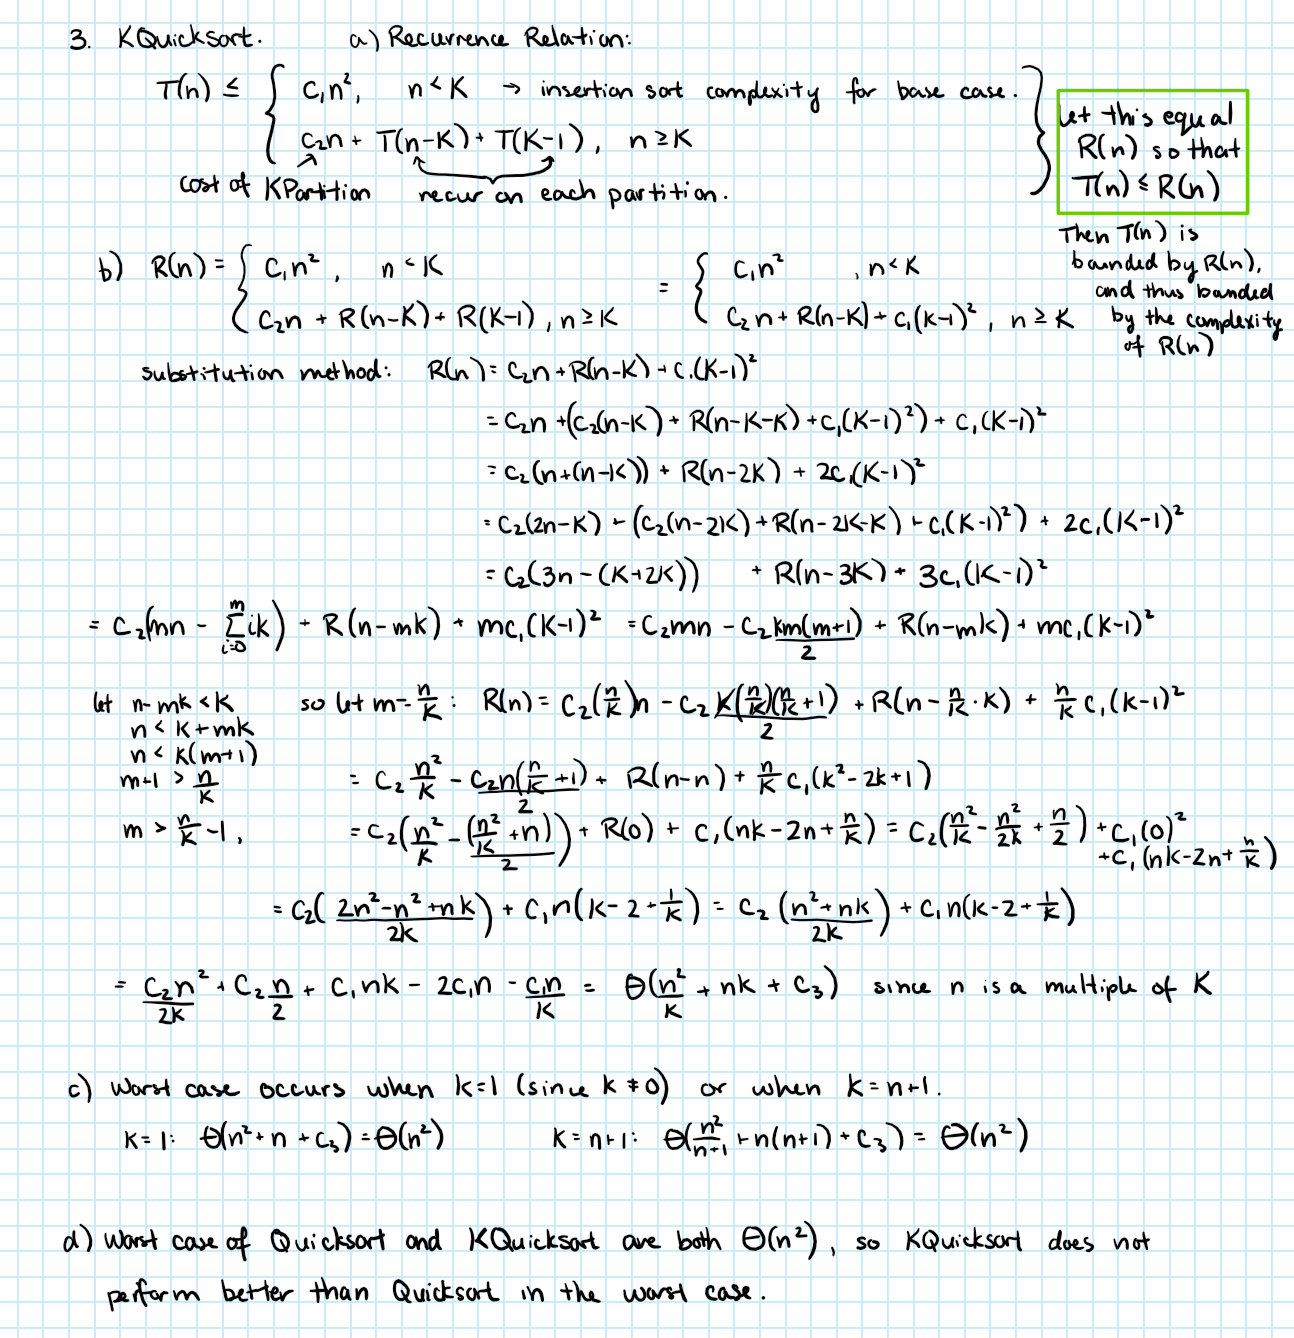 3. KQuicksort. a) Recurrence Relation:
T(n) ≤ { c₁n², n < K → insertion sort complexity for base case. }
c₂n + T(n-K) + T(K-1), n ≥ K
cost of KPartition recur on each partition.
Let this equal
R(n) so that
T(n) ≤ R(n)
Then T(n) is
bounded by R(n),
and thus bounded
by the complexity
of R(n)
b) R(n) = { c₁n², n < K = { c₁n², n < K
c₂n + R(n-K) + R(K-1), n ≥ K c₂n + R(n-K) + c₁(K-1)², n ≥ K
substitution method: R(n) = c₂n + R(n-K) + c₁(K-1)²
= c₂n + (c₂(n-K) + R(n-K-K) + c₁(K-1)²) + c₁(K-1)²
= c₂(n+(n-K)) + R(n-2K) + 2c₁(K-1)²
= c₂(2n-K) + (c₂(n-2K) + R(n-2K-K) + c₁(K-1)²) + 2c₁(K-1)²
= c₂(3n-(K+2K)) + R(n-3K) + 3c₁(K-1)²
= c₂(mn - Σ_{i=0}^{m} ik) + R(n-mk) + mc₁(K-1)² = c₂mn - c₂ km(m+1)/2 + R(n-mk) + mc₁(K-1)²
let n-mk < K so let m = n/K : R(n) = c₂(n/K)n - c₂ K(n/K)(n/K+1)/2 + R(n - n/K · K) + n/K c₁(k-1)²
n < K+mk
n < K(m+1)
m+1 > n/K = c₂ n²/K - c₂n(n/K+1)/2 + R(n-n) + n/K c₁(k²-2k+1)
m > n/K - 1, = c₂(n²/K - (n²/K + n)/2) + R(0) + c₁(nk-2n+n/K) = c₂(n²/K - n²/2k + n/2) + c₁(0)²
+ c₁(nk-2n+n/K)
= c₂( 2n²-n²+nk / 2k ) + c₁n(k-2+1/K) = c₂( n²+nk / 2k ) + c₁n(k-2+1/K)
= c₂n²/2k + c₂n/2 + c₁nk - 2c₁n - c₁n/K = Θ(n²/K + nk + c₃) since n is a multiple of K
c) Worst case occurs when k=1 (since k ≠ 0) or when k = n+1.
K=1: Θ(n²+n+c₃) = Θ(n²) K=n+1: Θ(n²/n+1 + n(n+1) + c₃) = Θ(n²)
d) Worst case of Quicksort and KQuicksort are both Θ(n²), so KQuicksort does not
perform better than Quicksort in the worst case.